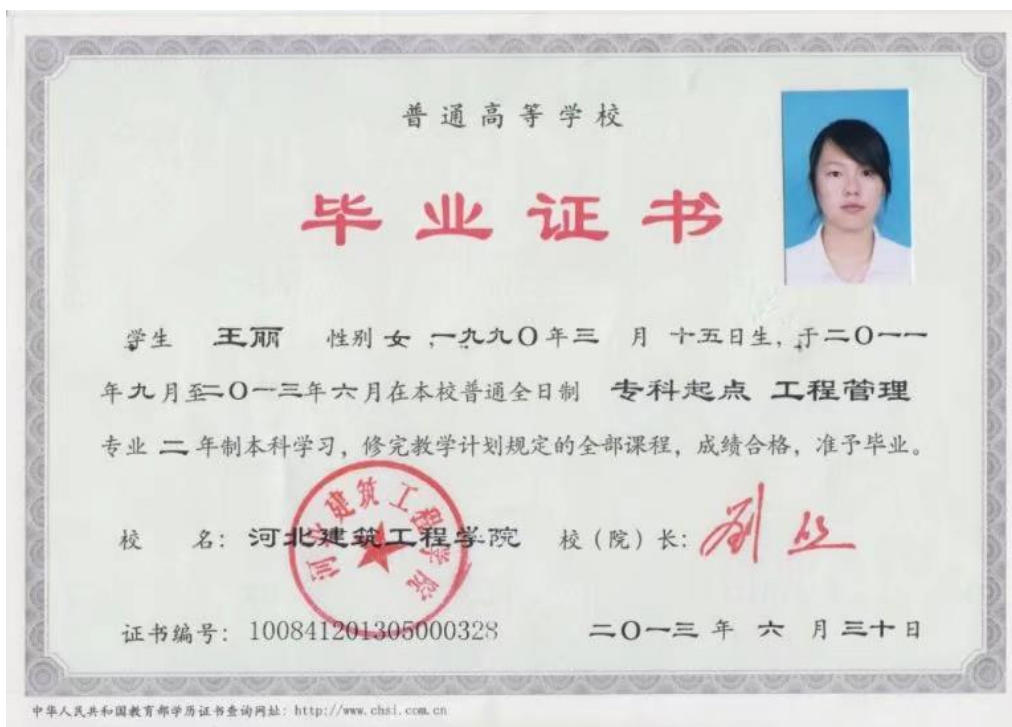 普通高等学校
毕业证书
学生 王丽 性别 女 ,一九九〇年三 月 十五日生,于二〇一一
年九月至二〇一三年六月在本校普通全日制 专科起点 工程管理
专业 二 年制本科学习,修完教学计划规定的全部课程,成绩合格,准予毕业。
校 名: 河北建筑工程学院 校(院)长:
河北建筑工程学院
证书编号: 100841201305000328 二〇一三 年 六 月 三十日
中华人民共和国教育部学历证书查询网址: http://www.chsi.com.cn